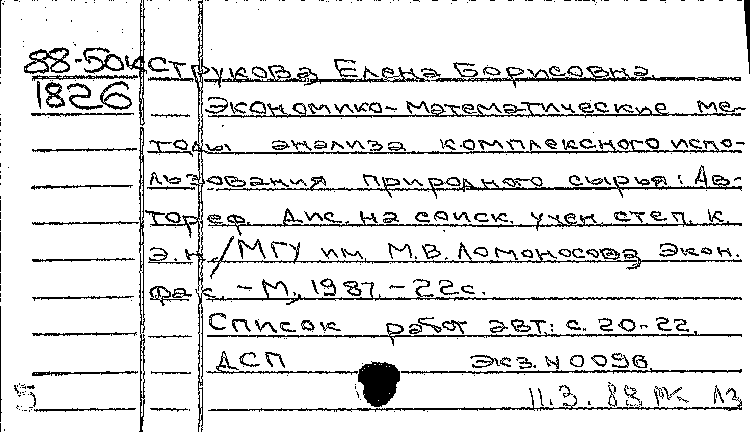 88-50к Струкова Елена Борисовна
1826 Экономико-математические ме-
тоды анализа комплексного испо-
льзования природного сырья: Ав-
тореф. Дис. на соиск. учен. степ. к.
э.н./МГУ им. М.В. Ломоносова Экон.
фак. -М, 1987.-22с.
Список работ авт: с. 20-22.
ДСП Экз. N 0096
5 11.3.88 РК ЛЗ